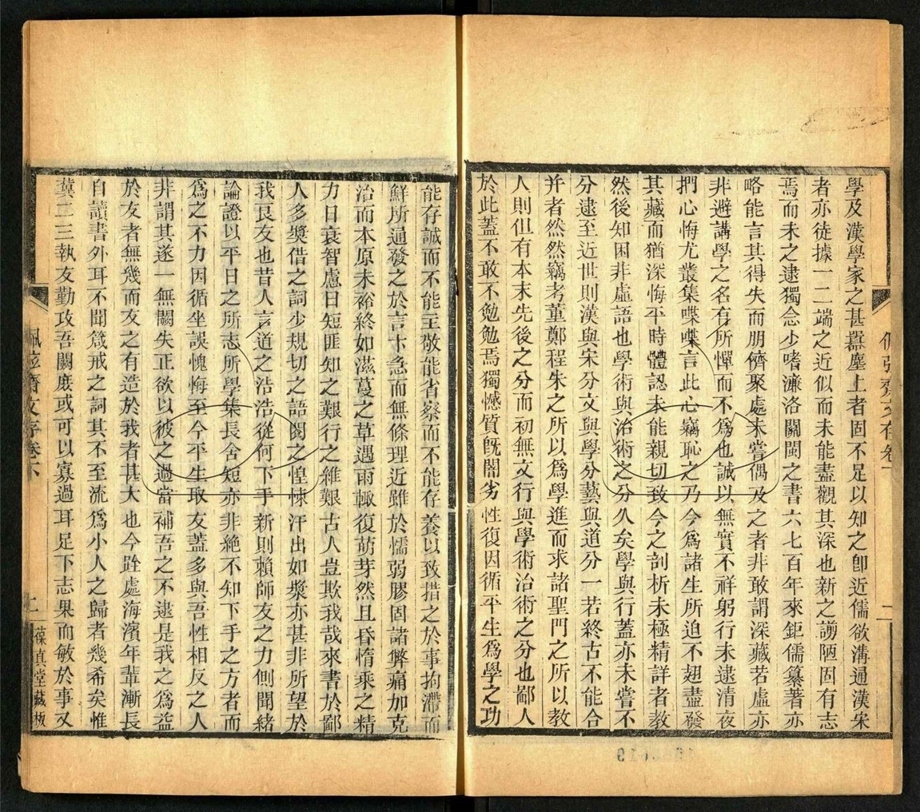 學及漢學家之甚囂塵上者固不足以知之卽近儒欲溝通漢宋
者亦徒據一二端之近似而未能盡觀其深也新之謭陋固有志
焉而未之逮獨念少嗜濂洛關閩之書六七百年來鉅儒纂著亦
略能言其得失而朋儕聚處未嘗偶及之者非敢謂深藏若虛亦
非避講學之名有所憚而不爲也誠以無實不祥躬行未逮清夜
捫心悔尤叢集喋喋言此心竊恥之乃今爲諸生所迫不翅盡發
其藏而猶深悔平時體認未能親切致今之剖析未極精詳者敎
然後知困非虛語也學術與治術之分久矣學與行蓋亦未嘗不
分逮至近世則漢與宋分文與學分藝與道分一若終古不能合
并者然然竊考董鄭程朱之所以爲學進而求諸聖門之所以敎
人則但有本末先後之分而初無文行與學術治術之分也鄙人
於此蓋不敢不勉勉焉獨憾質旣闇劣性復因循平生爲學之功
能存誠而不能主敬能省察而不能存養以致措之於事拘滯而
鮮所通發之於言卞急而無條理近雖於懦弱膠固諸弊痛加克
治而本原未裕終如滋蔓之草遇雨輒復萌芽然且昏惰乘之精
力日衰智慮日短匪知之艱行之維艱古人豈欺我哉來書於鄙
人多獎借之詞少規切之語閱之惶悚汗出如漿亦甚非所望於
我良友也昔人言道之浩浩從何下手新則賴師友之力側聞緒
論證以平日之所志所學集長舍短亦非絕不知下手之方者而
爲之不力因循坐誤愧悔至今平生取友蓋多與吾性相反之人
非謂其遂一無闕失正欲以彼之過當補吾之不逮是我之爲益
於友者無幾而友之有造於我者甚大也今跧處海濱年輩漸長
自讀書外耳不聞箴戒之詞其不至流爲小人之歸者幾希矣惟
冀二三執友勤攻吾闕庶或可以寡過耳足下志果而敏於事又
佩弦齋文存卷下
葆真堂藏板